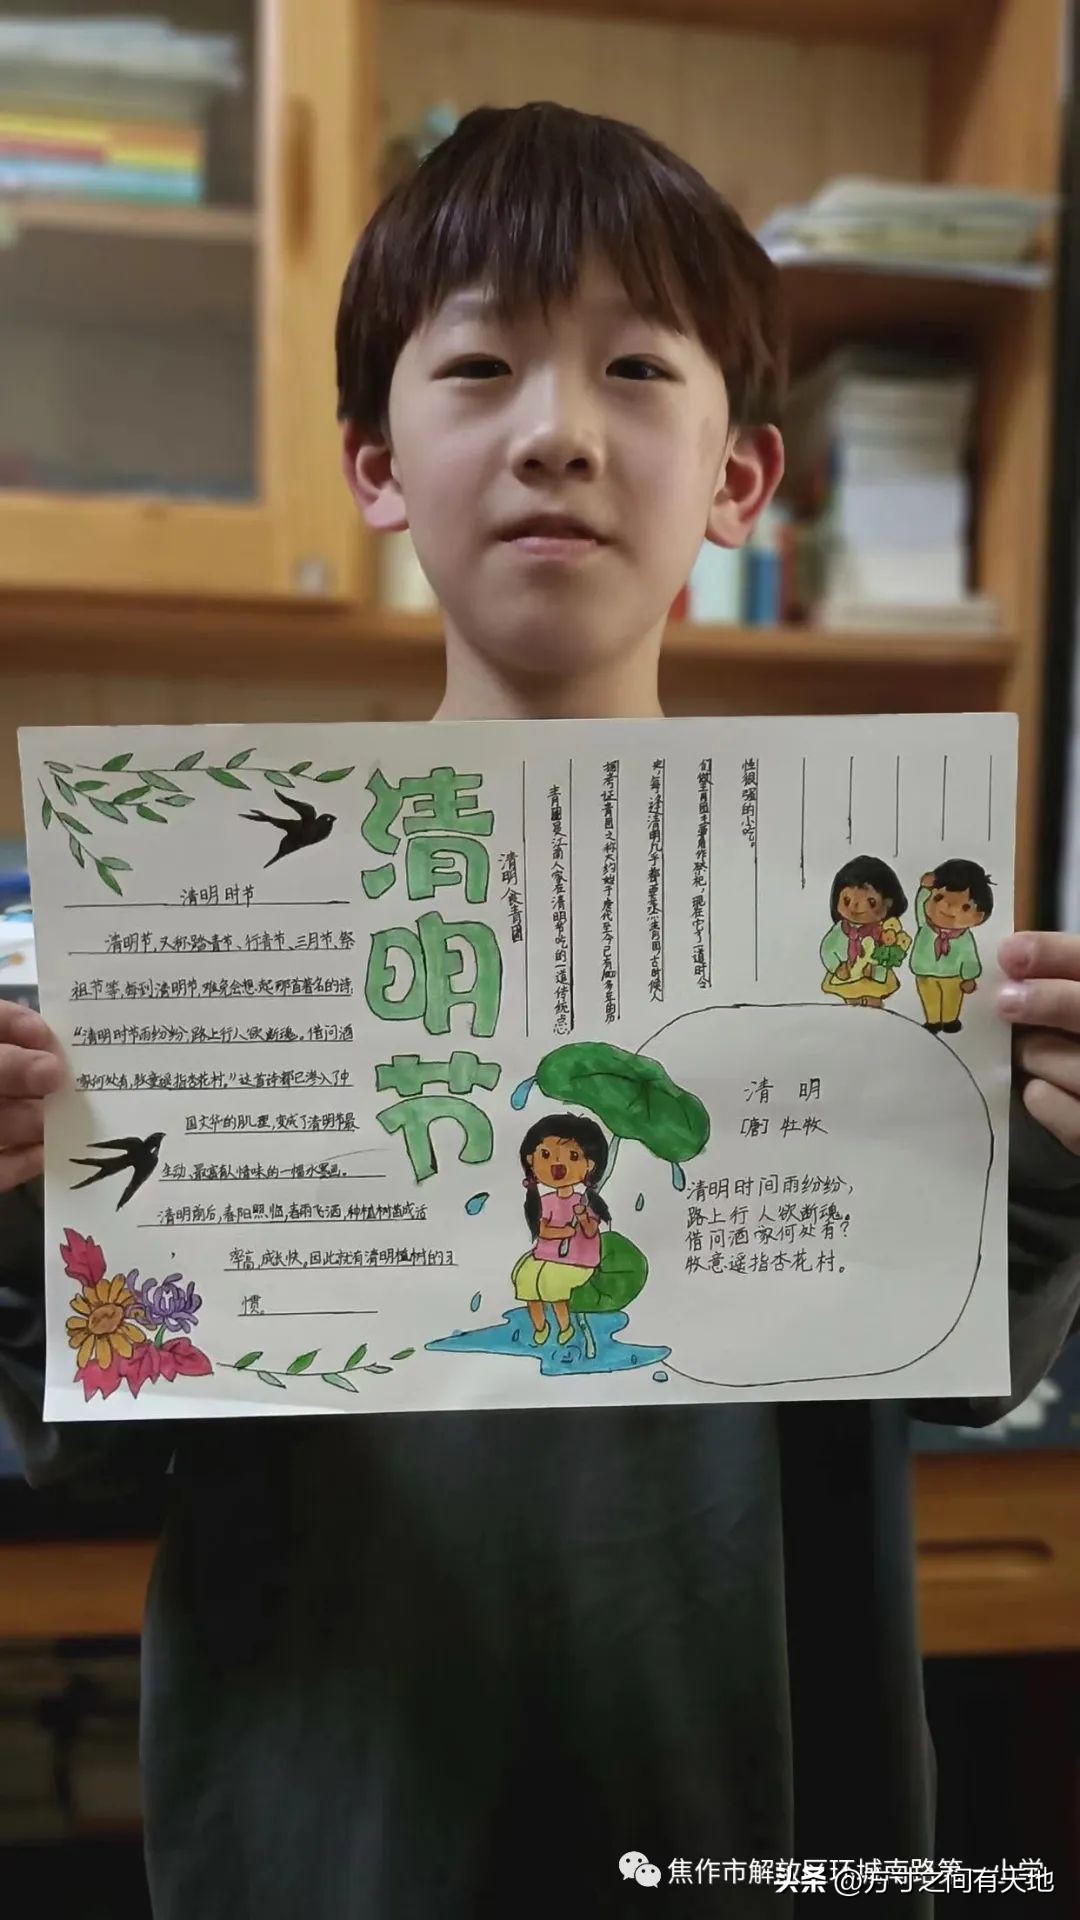 清明节
清明时节
清明节,又称踏青节、行青节、三月节、祭
祖节等,每到清明节,难免会想起那首著名的诗:
“清明时节雨纷纷,路上行人欲断魂。借问酒
家何处有,牧童遥指杏花村。”这首诗都已渗入了中
国文华的肌理,变成了清明节最
生动、最富有人情味的一幅水墨画。
清明前后,春阳照临,春雨飞洒,种植树苗成活
率高,成长快。因此就有清明植树的习
惯。
清明食青团
青团是江南人家在清明节吃的一道传统点心
据考证青团之称大约始于唐代至今已有
史,每逢清明几乎都要蒸青团古时候人
们做青团主要用作祭祀,现在它了一道时令
性很强的小吃。
清明
[唐] 牡牧
清明时间雨纷纷,
路上行人欲断魂。
借问酒家何处有?
牧意遥指杏花村。
焦作市解放区环城南路第一小学
头条 @方寸之间有天地